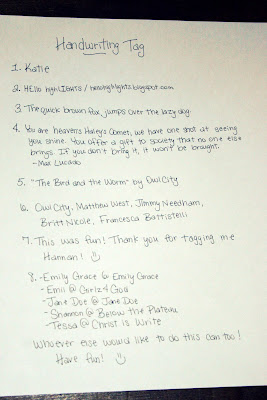 Handwriting Tag
1. Katie
2. Hello highlights / hellohighlights.blogspot.com
3. The quick brown fox jumps over the lazy dog.
4. You are heaven's Haley's Comet, we have one shot at seeing
you shine. You offer a gift to society that no one else
brings. If you don't bring it, it won't be brought.
-Max Lucado
5. "The Bird and the Worm" by Owl City
6. Owl City, Matthew West, Jimmy Needham,
Britt Nicole, Francesca Battistelli
7. This was fun! Thank you for tagging me
Hannah!
8. -Emily Grace @ Emily Grace
-Emii @ Gurlz 4 God
-Jane Doe @ Jane Doe
-Shannon @ Below the Plateau
-Tessa @ Christ is Write
Whoever else would like to do this can too!
Have fun!